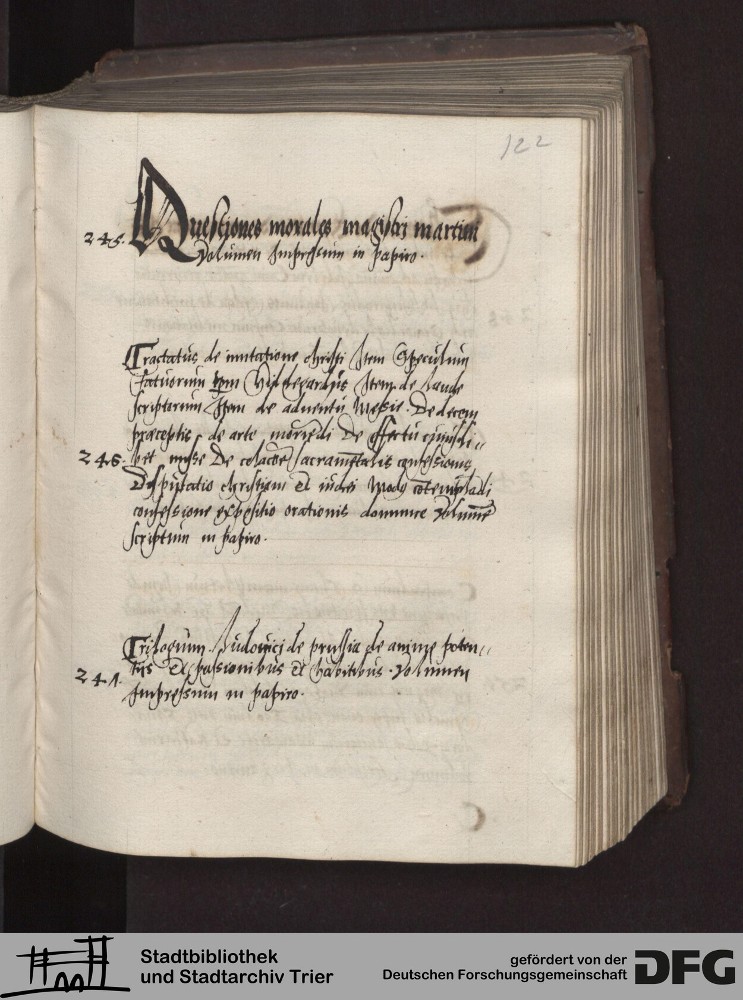 122
245. Questiones morales magistri martini
Volumen Impressum in papiro.
Tractatus de imitatione christi Item Speculum
fatuorum Hildegardis Item de laude
scriptorum Item de adventu Messie. De decem
præceptis de arte moriēdi De effectu cuiusli=
246. bet misse De sacramētalis confessionis
Disputatio christiani et iudei Modus cōtemplādi
confessione expositio orationis dominice Volumē
scriptum in papiro.
Trilogium Ludovici de prussia de anime poten=
241. tiis et passionibus et habitibus. Volumen
Impressum in papiro.
Stadtbibliothek
und Stadtarchiv Trier
gefördert von der
Deutschen Forschungsgemeinschaft
DFG